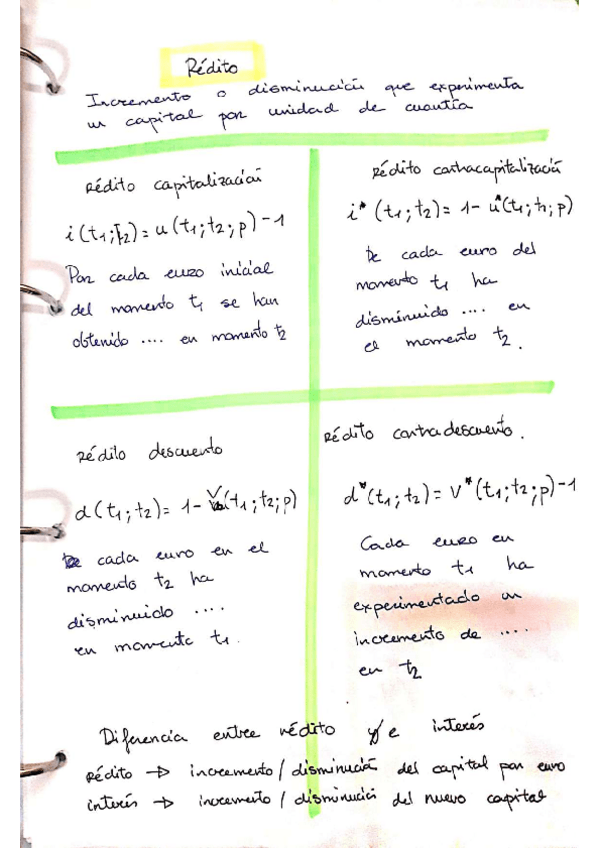 Rédito
Incremento o disminución que experimenta
un capital por unidad de cuantía
Rédito capitalización
i(t1;t2)= u(t1;t2;p)-1
Por cada euro inicial
del momento t1 se han
obtenido .... en momento t2
Rédito contracapitalización
i* (t1;t2)= 1- u*(t1;t2;p)
De cada euro del
momento t1 ha
disminuido .... en
el momento t2.
Rédito descuento
d(t1;t2)= 1-V(t1;t2;p)
De cada euro en el
momento t2 ha
disminuido ....
en momento t1.
Rédito contradescuento.
d*(t1;t2)= V*(t1;t2;p)-1
Cada euro en
momento t1 ha
experimentado un
incremento de ....
en t2
Diferencia entre rédito e interés
Rédito → incremento/disminución del capital por euro
interés → incremento/disminució del nuevo capital